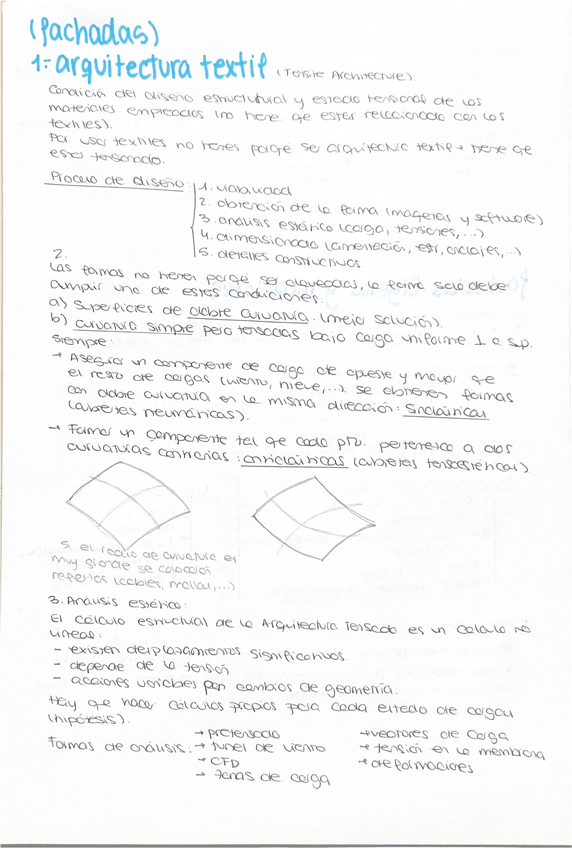 (fachadas)
1.- arquitectura textil (Tensile Architecture)
Condición del diseño estructutural y estado tensional de los
materiales empleados (no tiene qe estar relacionado con los
textiles).
Por usar textiles no tienes porqe ser arquitectura textil → tiene qe
estar tensionado.
Proceso de diseño:
1. viabilidad
2. obtención de la forma (maquetas y software)
3. análisis estático (carga, tensiones,...)
4. dimensionado (cimentación, estr, anclajes,...)
5. detalles constructivos
2.
Las formas no tienen porqé ser alveadas, la forma solo debe
cumplir una de estas condiciones.
a) Superficies de doble curvatura. (mejor solución).
b) curvatura simple pero tensadas bajo carga uniforme ⊥ a sup.
siempre:
→ Asegurar un componente de carga de opuesta y mayor qe
el resto de cargas (viento, nieve,...). se obtienen formas
con doble curvatura en la misma dirección: sinclásticas
(cubiertas neumáticas).
→ Formar un componente tal qe cada pto. pertenezca a dos
curvaturas contrarias: anticlásticas (cubiertas tensoestáticas)
Si el radio de curvatura es
muy grande se colocan
refuertos (cables, mallas,...)
3. Análisis estático:
El cálculo estructural de la Arquitectura Tensada es un calculo no
lineal:
- existen desplazamientos significativos.
- depende de la tensión
- acciones variables por cambios de geometría.
Hay qe hacer cálculos propios para cada estado de cargas
(hipótesis).
Formas de análisis:
→ pretensado
→ tunel de viento
→ CFD
→ zonas de carga
→ vectores de carga
→ tensión en la membrana
→ deformaciones